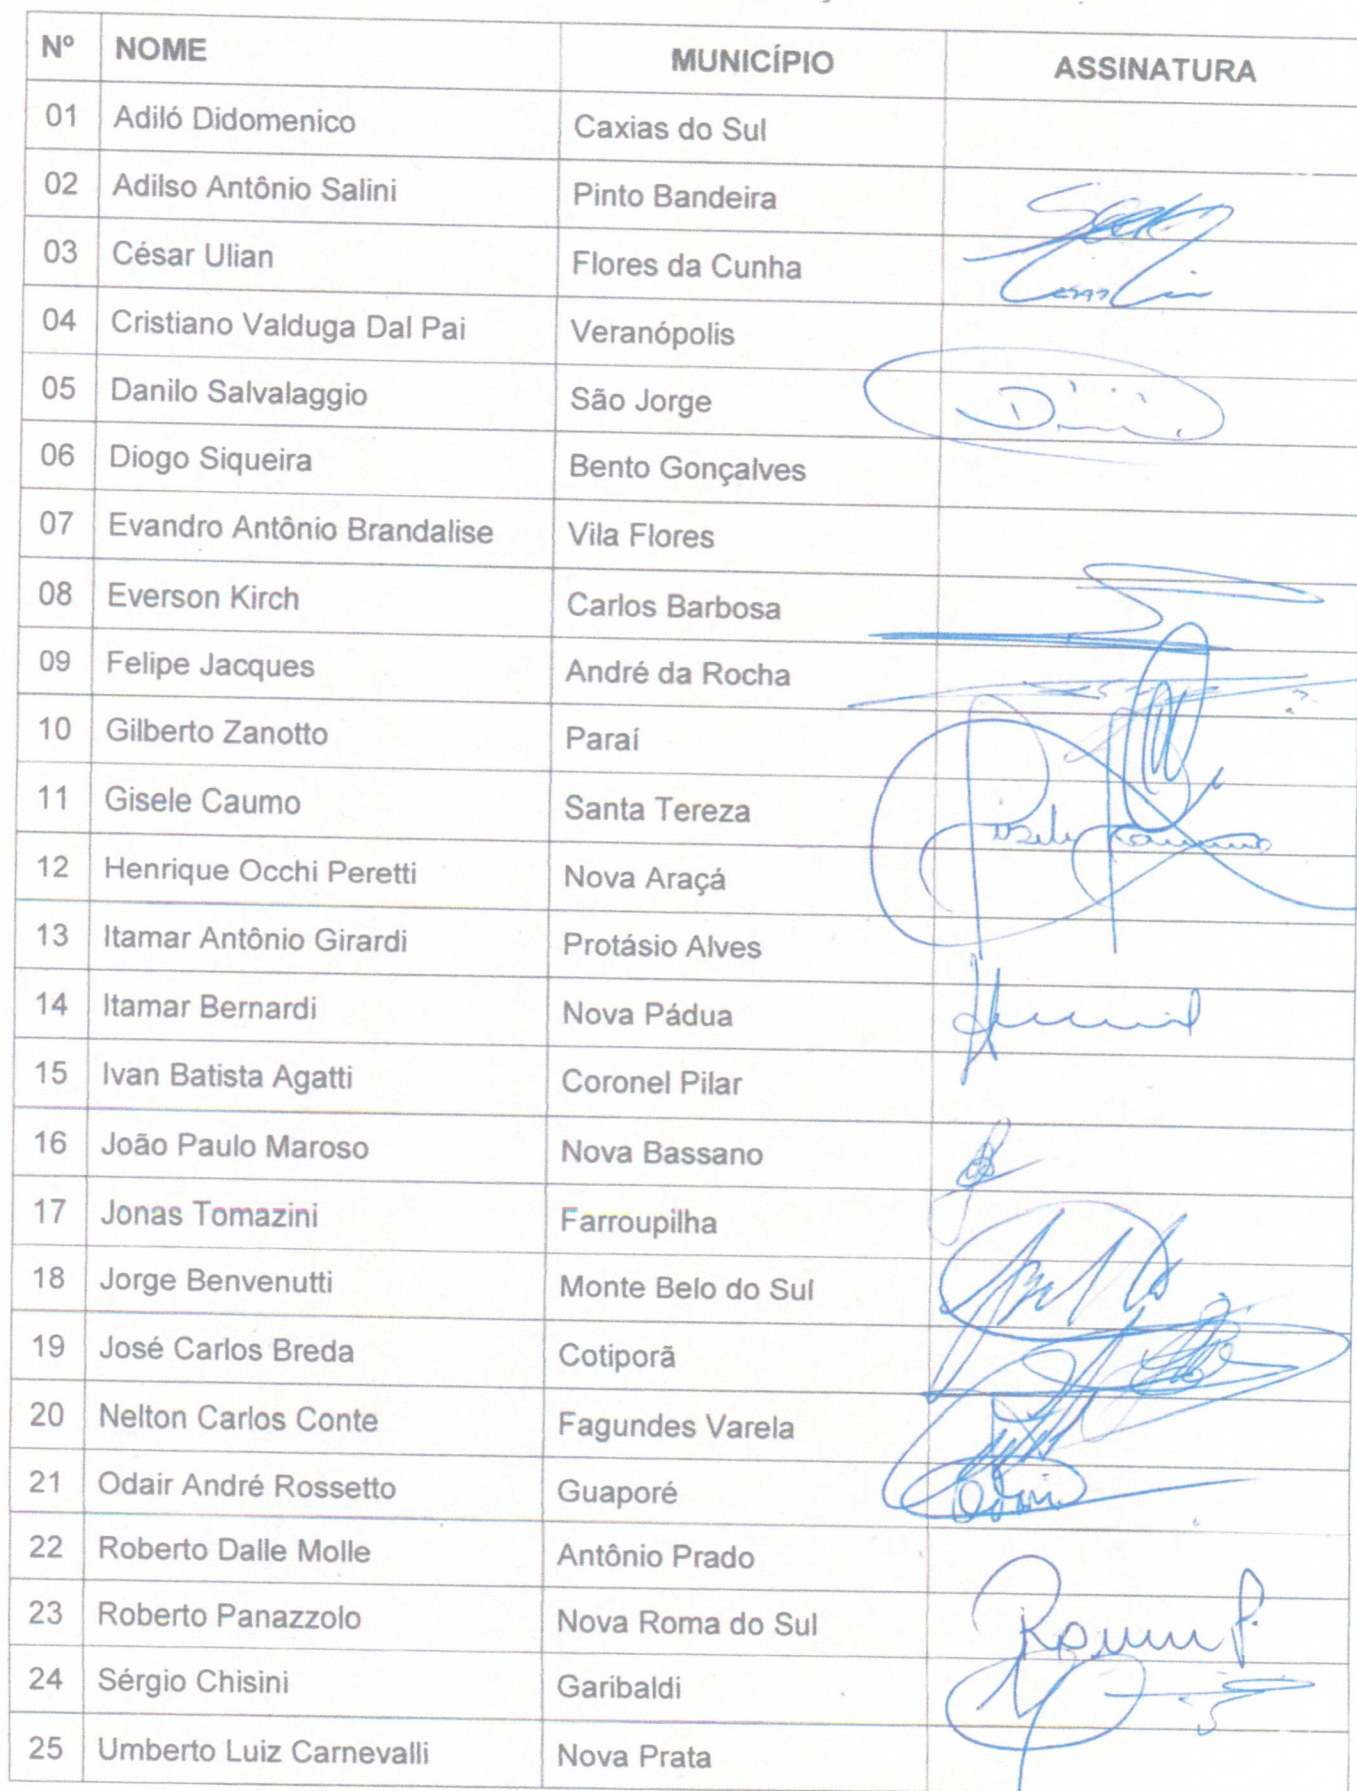 Nº NOME MUNICÍPIO ASSINATURA
01 Adiló Didomenico Caxias do Sul
02 Adilso Antônio Salini Pinto Bandeira
03 César Ulian Flores da Cunha
04 Cristiano Valduga Dal Pai Veranópolis
05 Danilo Salvalaggio São Jorge
06 Diogo Siqueira Bento Gonçalves
07 Evandro Antônio Brandalise Vila Flores
08 Everson Kirch Carlos Barbosa
09 Felipe Jacques André da Rocha
10 Gilberto Zanotto Paraí
11 Gisele Caumo Santa Tereza
12 Henrique Occhi Peretti Nova Araçá
13 Itamar Antônio Girardi Protásio Alves
14 Itamar Bernardi Nova Pádua
15 Ivan Batista Agatti Coronel Pilar
16 João Paulo Maroso Nova Bassano
17 Jonas Tomazini Farroupilha
18 Jorge Benvenutti Monte Belo do Sul
19 José Carlos Breda Cotiporã
20 Nelton Carlos Conte Fagundes Varela
21 Odair André Rossetto Guaporé
22 Roberto Dalle Molle Antônio Prado
23 Roberto Panazzolo Nova Roma do Sul
24 Sérgio Chisini Garibaldi
25 Umberto Luiz Carnevalli Nova Prata